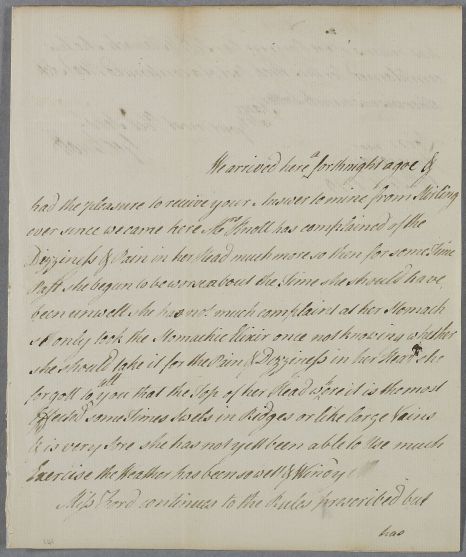 We arrived here a forthnight agoe &
had the pleasure to receive your Answer to mine from Stirling
ever since we came here Mrs Knoll has complained of the
Dizziness & Pain in her Head much more so then for some time
past she began to be worse about the Time she should have
been unwell she has not much complaint at her Stomach
so only took the Stomachic Elixir once not knowing whether
she should take it for the Pain & Dizziness in her Head she
forgott to tell you that the Top of her Head where it is the most
affected sometimes Swels in Ridges or like large Vains
& is very Sore she has not yett been able to Use much
Exercise the Weather has been so wett & Windy
Miss Ford continues to the Rules prescribed but
has